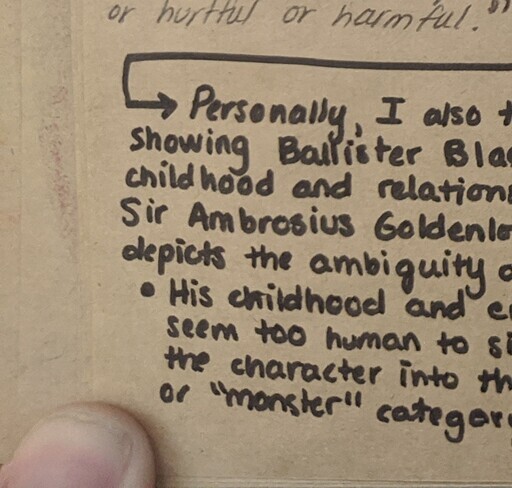 or hurtful or harmful."
Personally, I also
showing Ballister
childhood and
Sir Ambrosius
depicts the ambiguity
• His childhood and
seem too human to
the character into
or "monster"